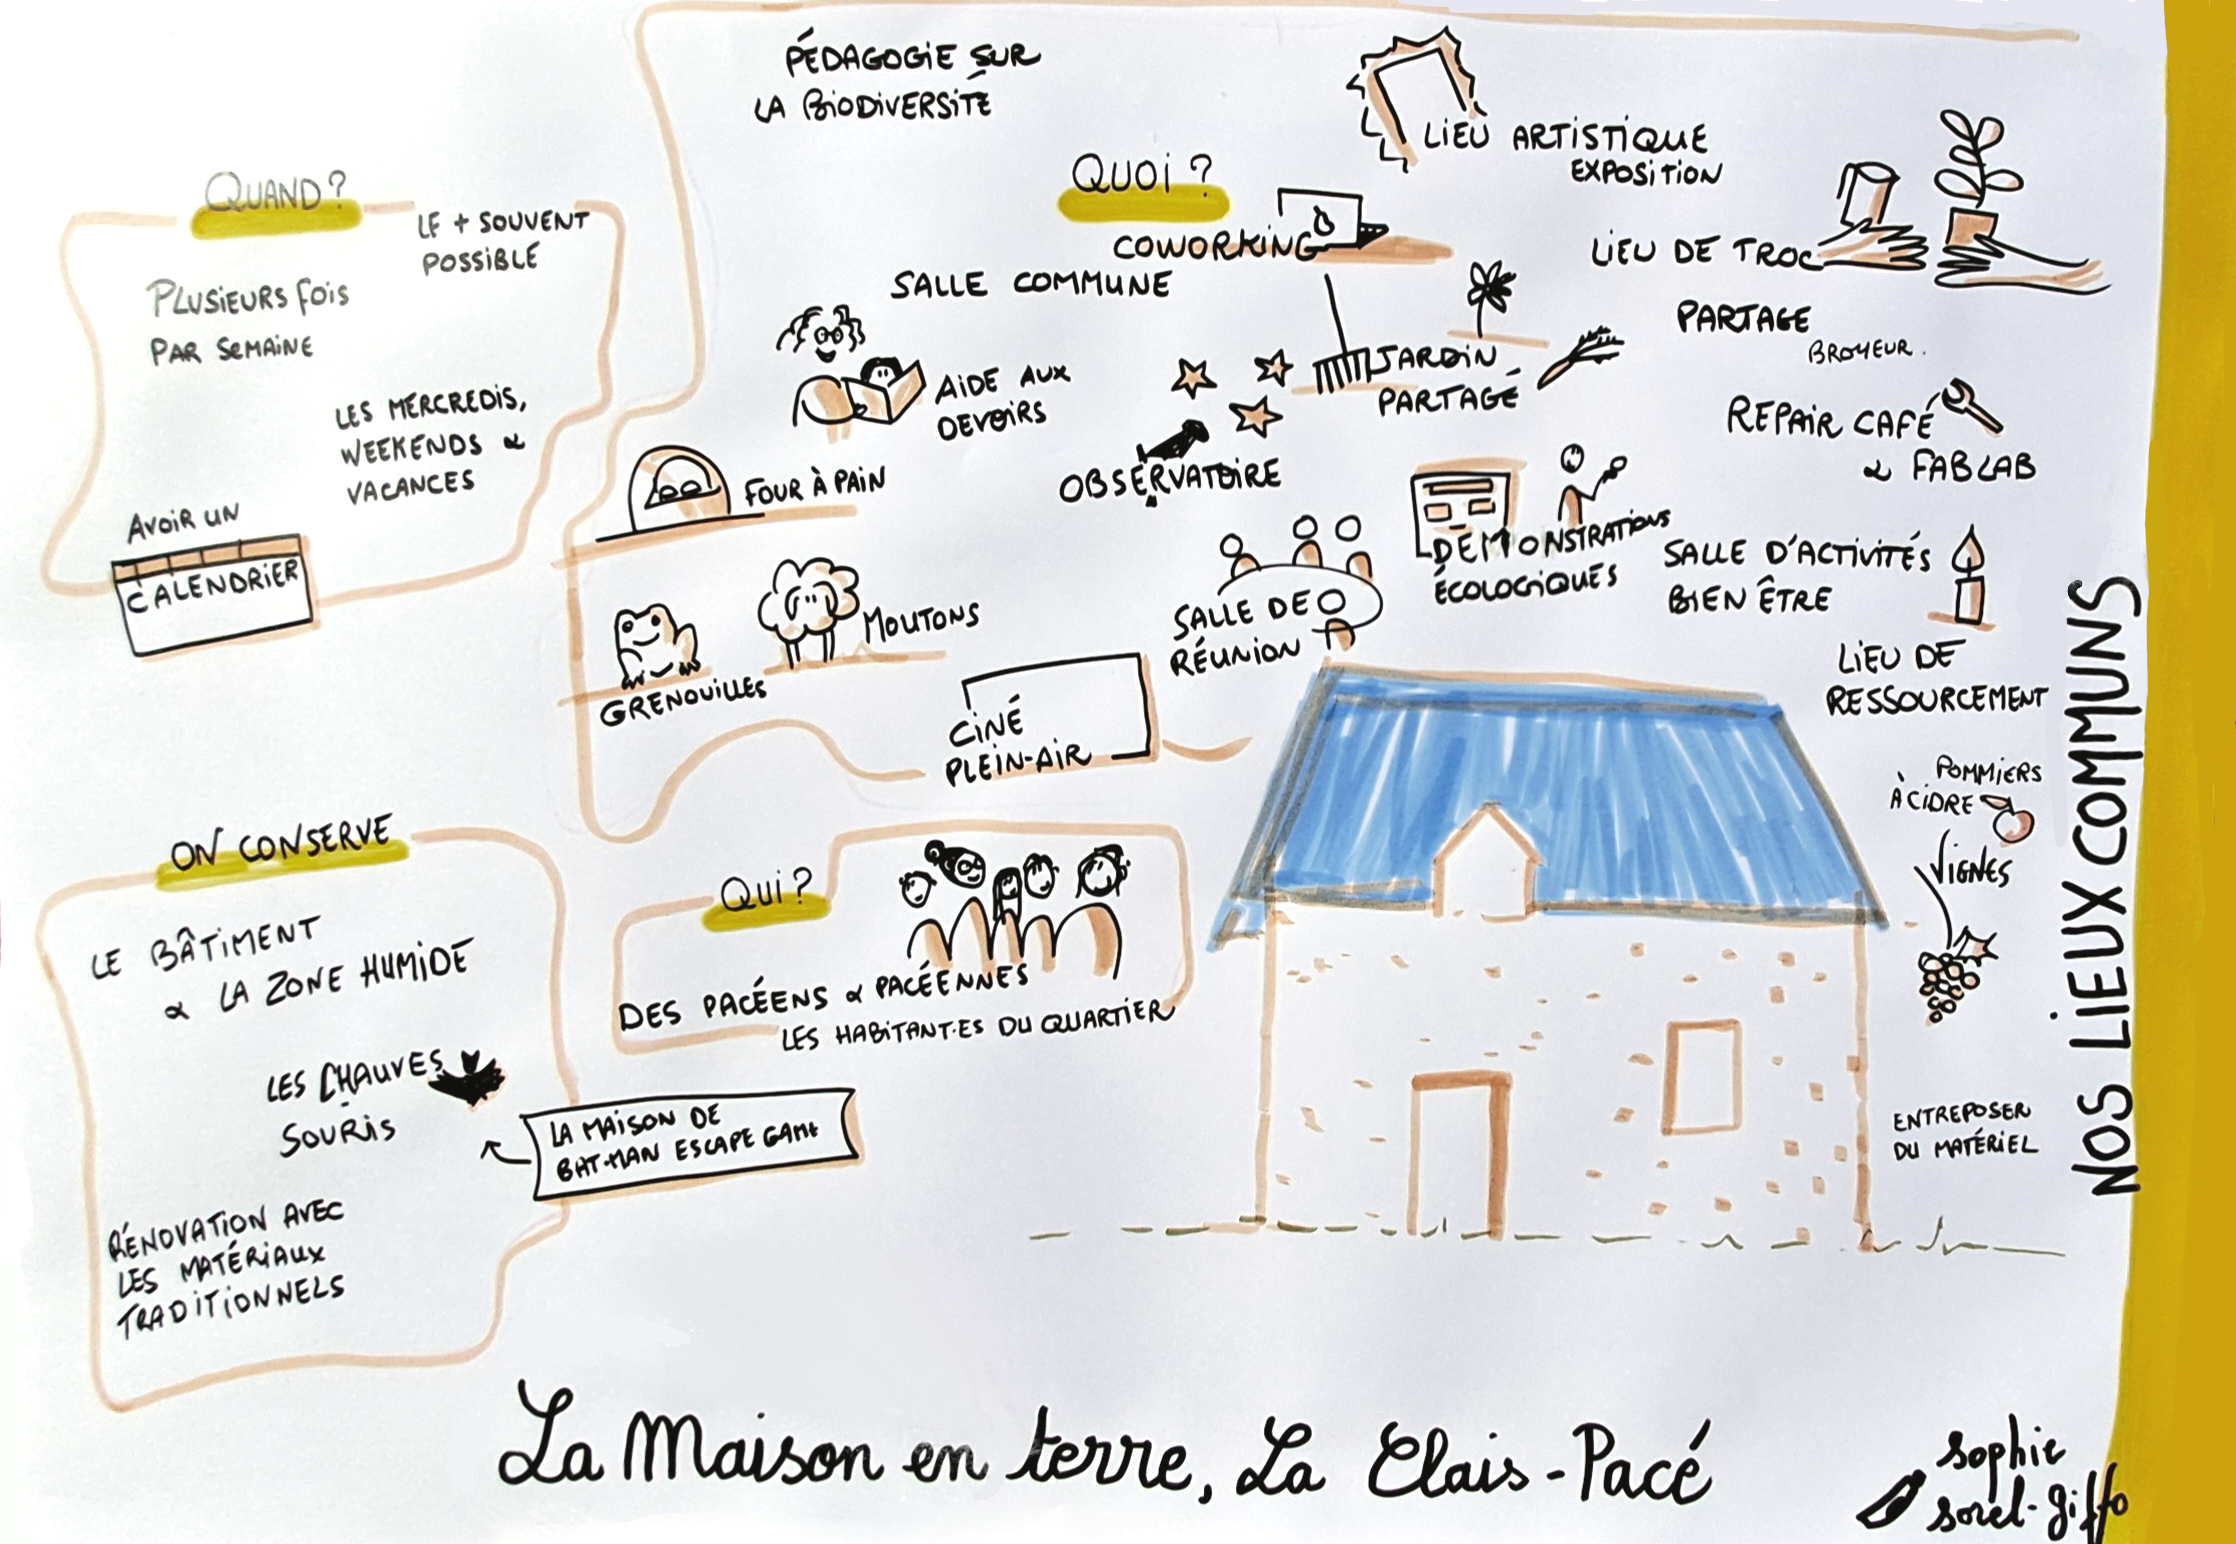 QUAND ?
LE + SOUVENT
POSSIBLE
PLUSIEURS FOIS
PAR SEMAINE
LES MERCREDIS,
WEEKENDS &
VACANCES
AVOIR UN
CALENDRIER
PÉDAGOGIE SUR
LA BIODIVERSITÉ
QUOI ?
LIEU ARTISTIQUE
EXPOSITION
COWORKING
LIEU DE TROC
SALLE COMMUNE
PARTAGE
BROYEUR.
AIDE AUX
DEVOIRS
JARDIN
PARTAGÉ
REPAIR CAFÉ
& FABLAB
FOUR À PAIN
OBSERVATOIRE
DEMONSTRATIONS
ÉCOLOGIQUES
SALLE D'ACTIVITÉS
BIEN ÊTRE
MOUTONS
GRENOUILLES
SALLE DE
RÉUNION
LIEU DE
RESSOURCEMENT
CINÉ
PLEIN-AIR
POMMIERS
À CIDRE
VIGNES
ENTREPOSER
DU MATÉRIEL
NOS LIEUX COMMUNS
ON CONSERVE
LE BÂTIMENT
& LA ZONE HUMIDE
LES CHAUVES
SOURIS
LA MAISON DE
BAT-MAN ESCAPE GAME
RÉNOVATION AVEC
LES MATÉRIAUX
TRADITIONNELS
QUI ?
DES PACÉENS & PACÉENNES
LES HABITANT·ES DU QUARTIER
La Maison en terre, La Clais-Pacé
sophie
sorel-giffo